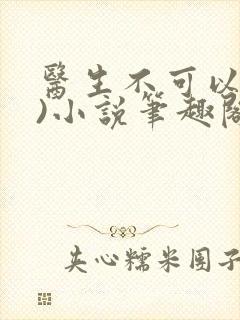 醫生不可以
)小說筆趣閣
夹心糯米团子